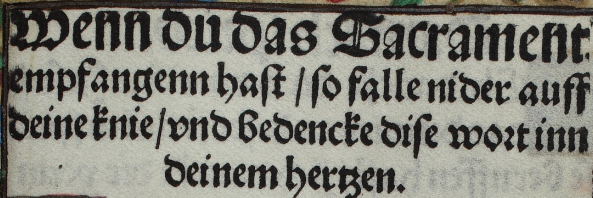 Wenn du das Sacrament
empfangenn hast / so falle nider auff
deine knie / vnd bedencke dise wort inn
deinem hertzen.